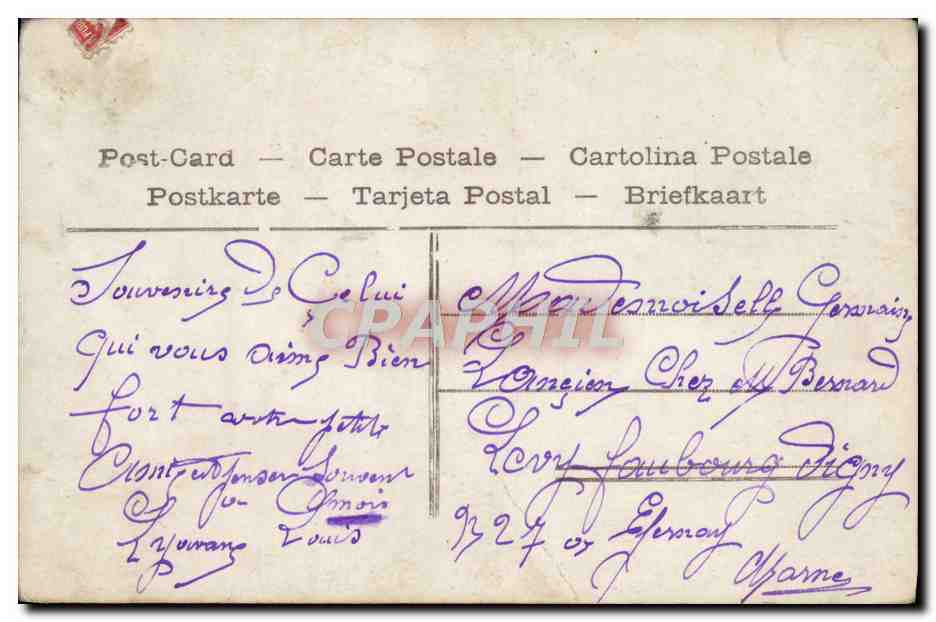 Post-Card — Carte Postale — Cartolina Postale
Postkarte — Tarjeta Postal — Briefkaart
Souvenirs De Celui
qui vous aime Bien
fort votre petite
Amie et penser Souvent
a moi
Louis
Mademoiselle Germaine
Lançien Chez M Bernard
Levy faubourg d'igny
N 27 Epernay
Marne
CPARAPHIL